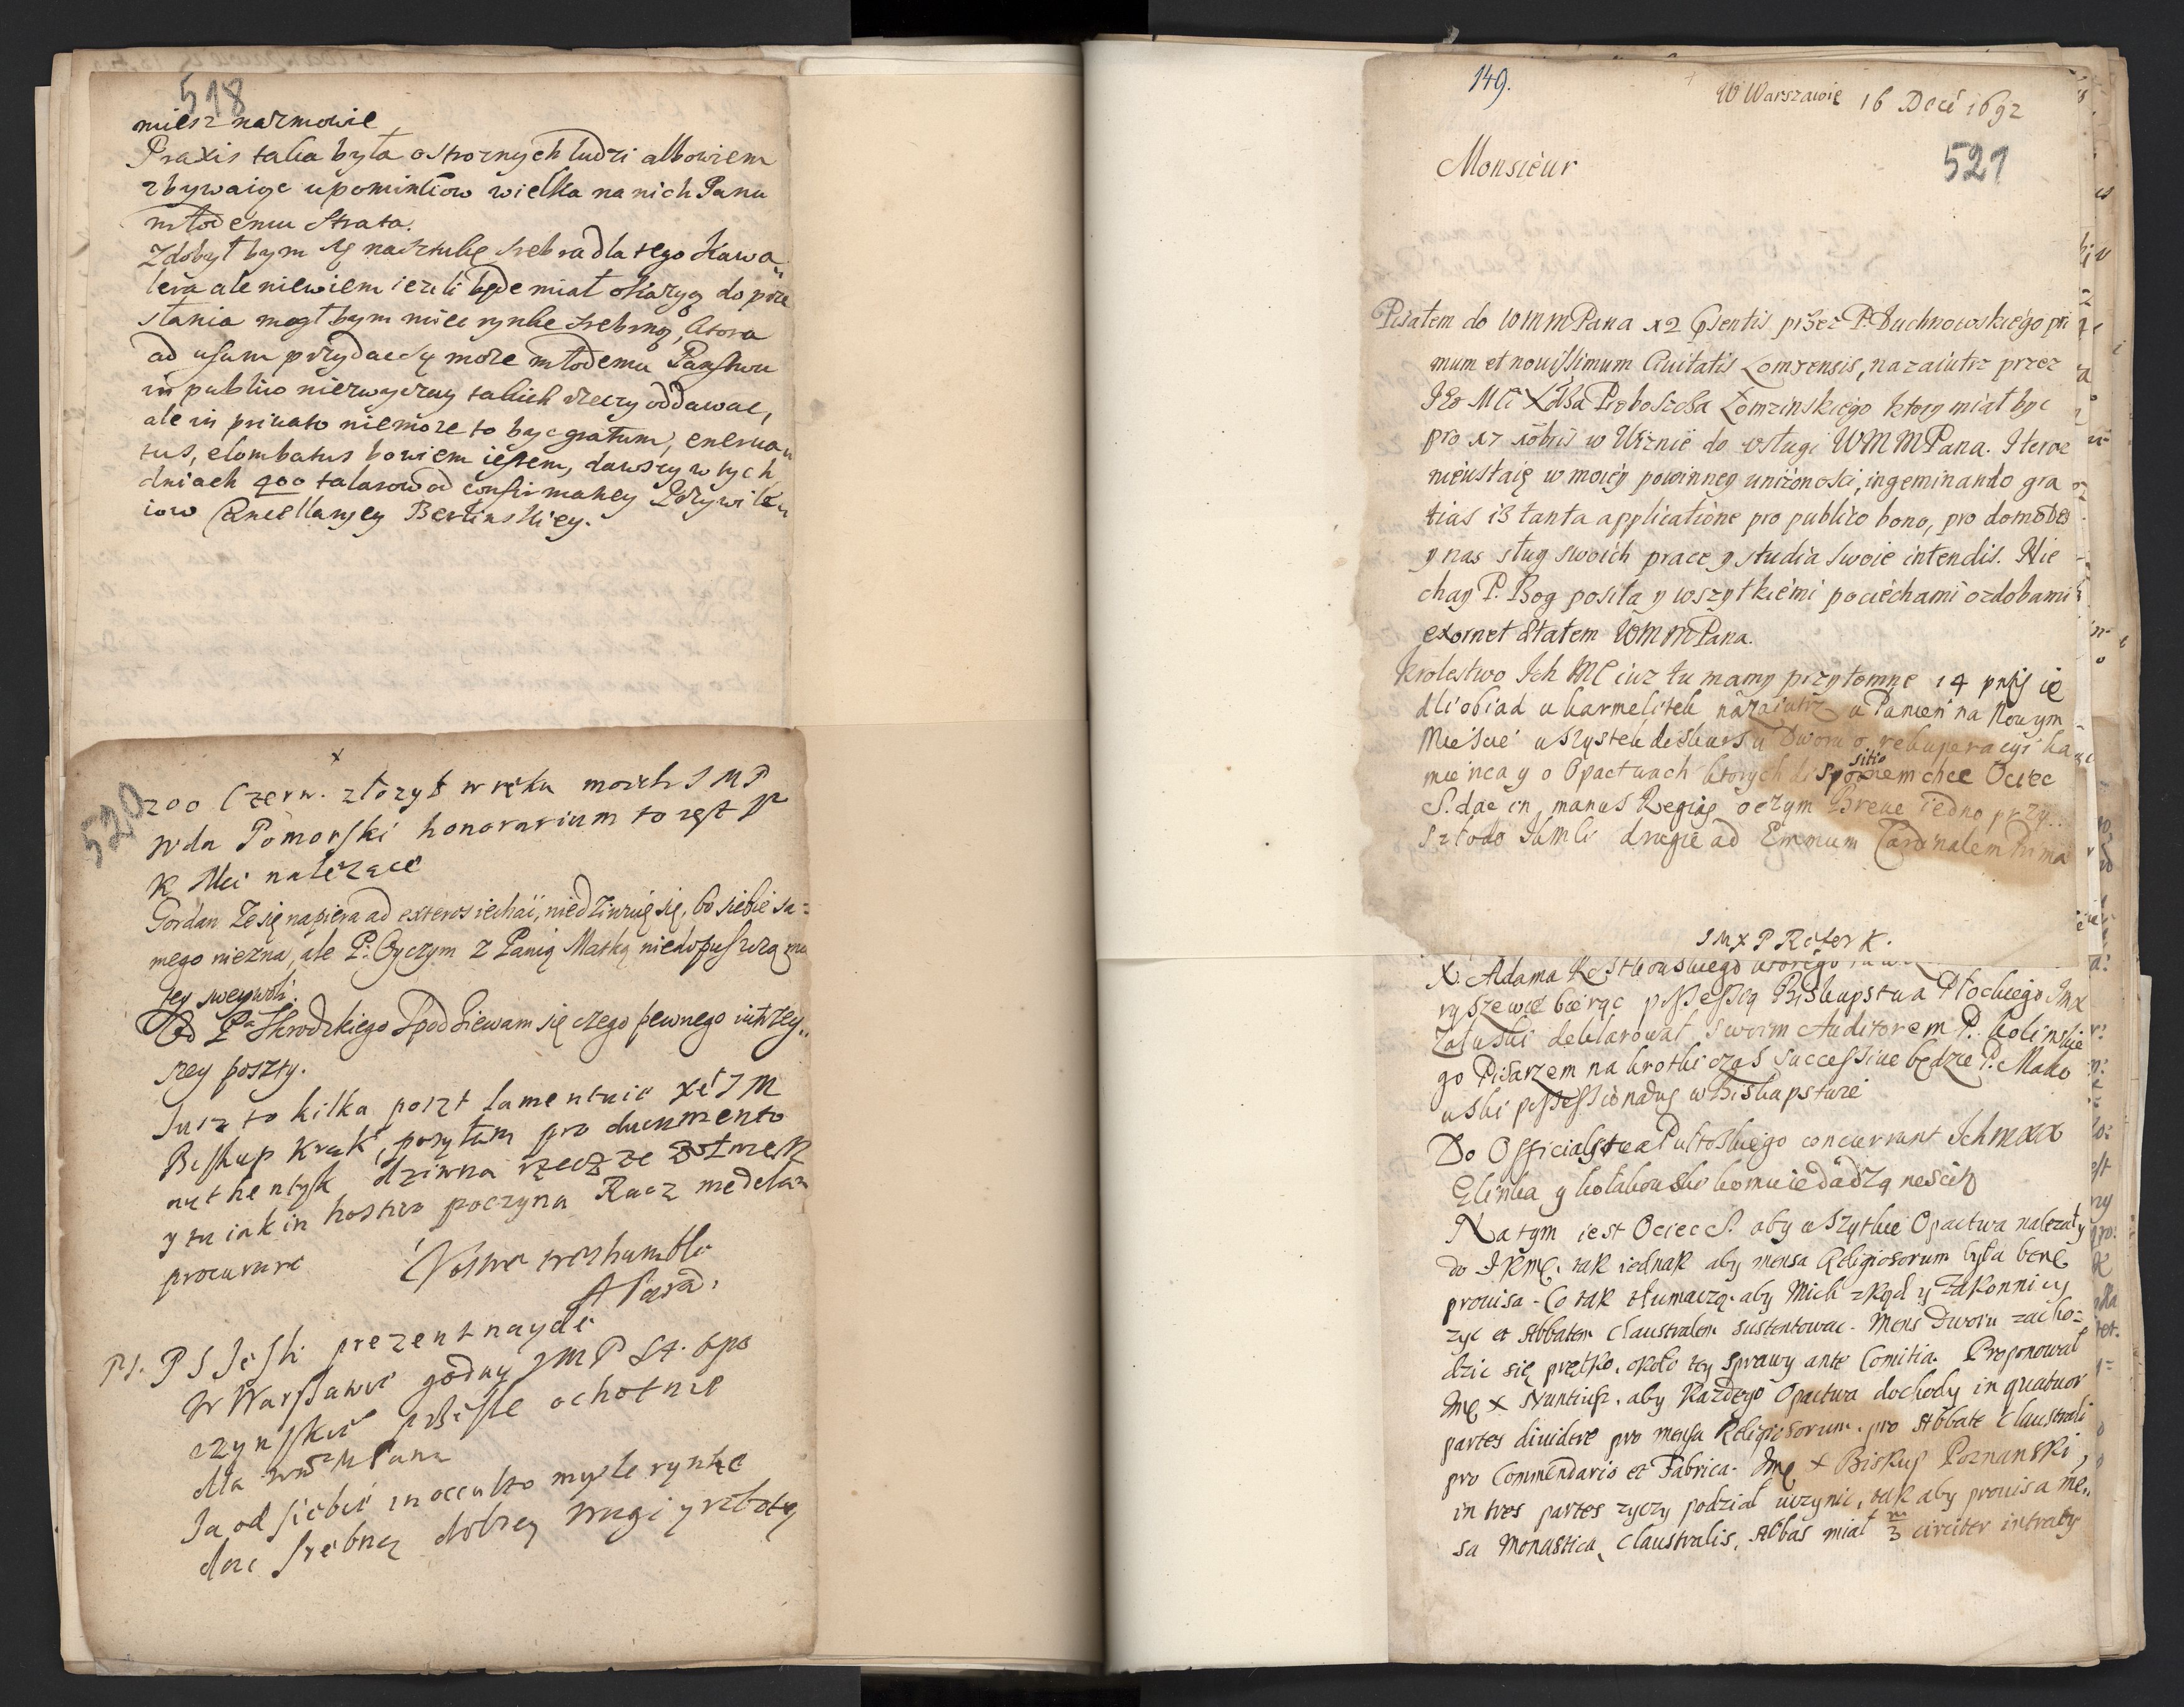 518
miesz narmowie
Praxis taka była ostroznych ludzi albowiem
zbywaiąc upominkow wielka na nich Panu
młodemu strata.
Zdobył bym się na sztukę srebra dla tego Kawa
lera ale niewiem iezeli będe miał okazyą do prze
słania mogł bym miec rynkę srebrną, ktora
ad usum przydac się moze młodemu Państwu
in publico niezwyczay takich rzeczy oddawac,
ale in privato niemoze to byc gratum, enerua
tus, elombatus bowiem iestem, dawszy w tych
dniach 400 talarow od confirmacyey Przywile
iow Cancellaryey Berlinskiey.
520
x
200 Czerw. złozył w ręku moich J M P
Wda Pomorski honorarium to ręst P
K Mci nalezące
Gordan ze się napiera ad exteros iechać, niedziwuię się, bo siebie sa=
mego niezna, ale P: Oyczym z Panią Matką niedopuszczą mu
tey sweywoli.
Od Pa Skrodzkiego Spodziewam się czego pewnego iutrzey..
szey poszty.
Jusz to kilka poczt lamentuie xć J M
Biskup Krak, posyłam pro documento
authentyk dziwna rzecz ze
y tu iak in hostico poczyna Racz medelam
procurare
Votre treshumble
PS. PS Jeśli prezent naydę
W Warszawie godny J M P St. opo
czynskie przysle ochotnie
dla Pana
Ja od siebie in occulto mysle rynkę
dac srebną dobrey wagi y roboty
149.
W Warszawie 16 Decẽ 1692
521
Monsieur
Pisałem do WMMPana 12 psentis przez P. Suchnowskiego pri
mum et nouissimum Ciuitatis Lomzensis, nazaiutrz przez
Jeo Mci Xdsa Proboszcsa Łomzinskiego ktory miał byc
pro 17 10bris w Wiznie do vsługi WMMPana. Iteroe
nieustaię w moiey powinney unizonosci, ingeminando gra
tias iz tanta applicatione pro publico bono, pro domo Dei
y nas sług swoich prace y studia swoie intendis. Nie
chay P. Bog posila y wszytkiemi pociechami ozdobami
exornet Statem WMMPana.
Krolestwo Ich MC iuz tu mamy przytomne 14 pntis ie
dli obiad u karmelitek nazaiutrz u Panien na Nowym
Mieście wszystek diskurs u Dworu o rekuperacyi ka
mieńca y o Opactwach ktorych dispositionem chce Ociec
S. dac in manus Regias o czym Breue iedno przy..
szło do Jkmći drugie ad Emmum Cardinalem Prima
J M X P Refer K.
X. Adama
ryszewie biorąc possessią Biskupstwa Płockiego Jmx
Załuski deklarował swoim Auditorem P. Kolinskie
go Pisarzem na krotki czas successiue będzie P. Mako
wski possessionatus w Biskupstwie
Do Officialstwa Pultoskiego concurrunt Ichmxx
Glinka y kołakowski komu ie dadzą nescit
Na tym iest Ociec S. aby wszytkie Opactwa nalezały
do JKmę. tak iednak aby mensa Religiosorum była bene
prouisa. Co tak tłumaczą. aby Mieli zkąd y zakonnicy
zyc et Abbatem Claustralem sustentowac. Mens Dworu zacho=
dzic się prętko, około tey sprawy ante Comitia. Proponował
Jmę X Nuntius. aby kazdego Opactwa dochody in quatuor
partes diuidere pro mensa Religiosorum. pro Abbate Claustrali
pro Commendario et Fabrica. Jmę X Biskup Poznanski,
in tres partes zyczy podział uczynic, tak aby prouisa me..
sa Monastica, Claustralis, Abbas miał m/3 circiter intraty